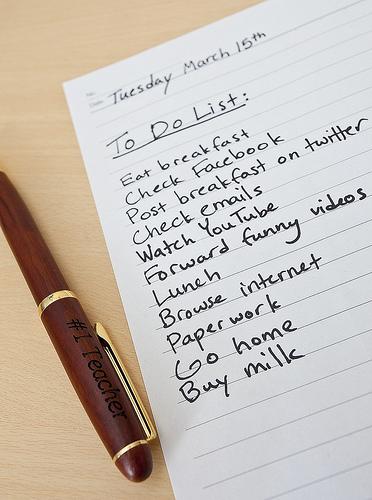 No.
Date
Tuesday March 15th
To Do List:
Eat breakfast
Check Facebook
Post breakfast on twitter
Check emails
Watch YouTube
Forward funny videos
Lunch
Browse internet
Paperwork
Go home
Buy milk
#1 Teacher